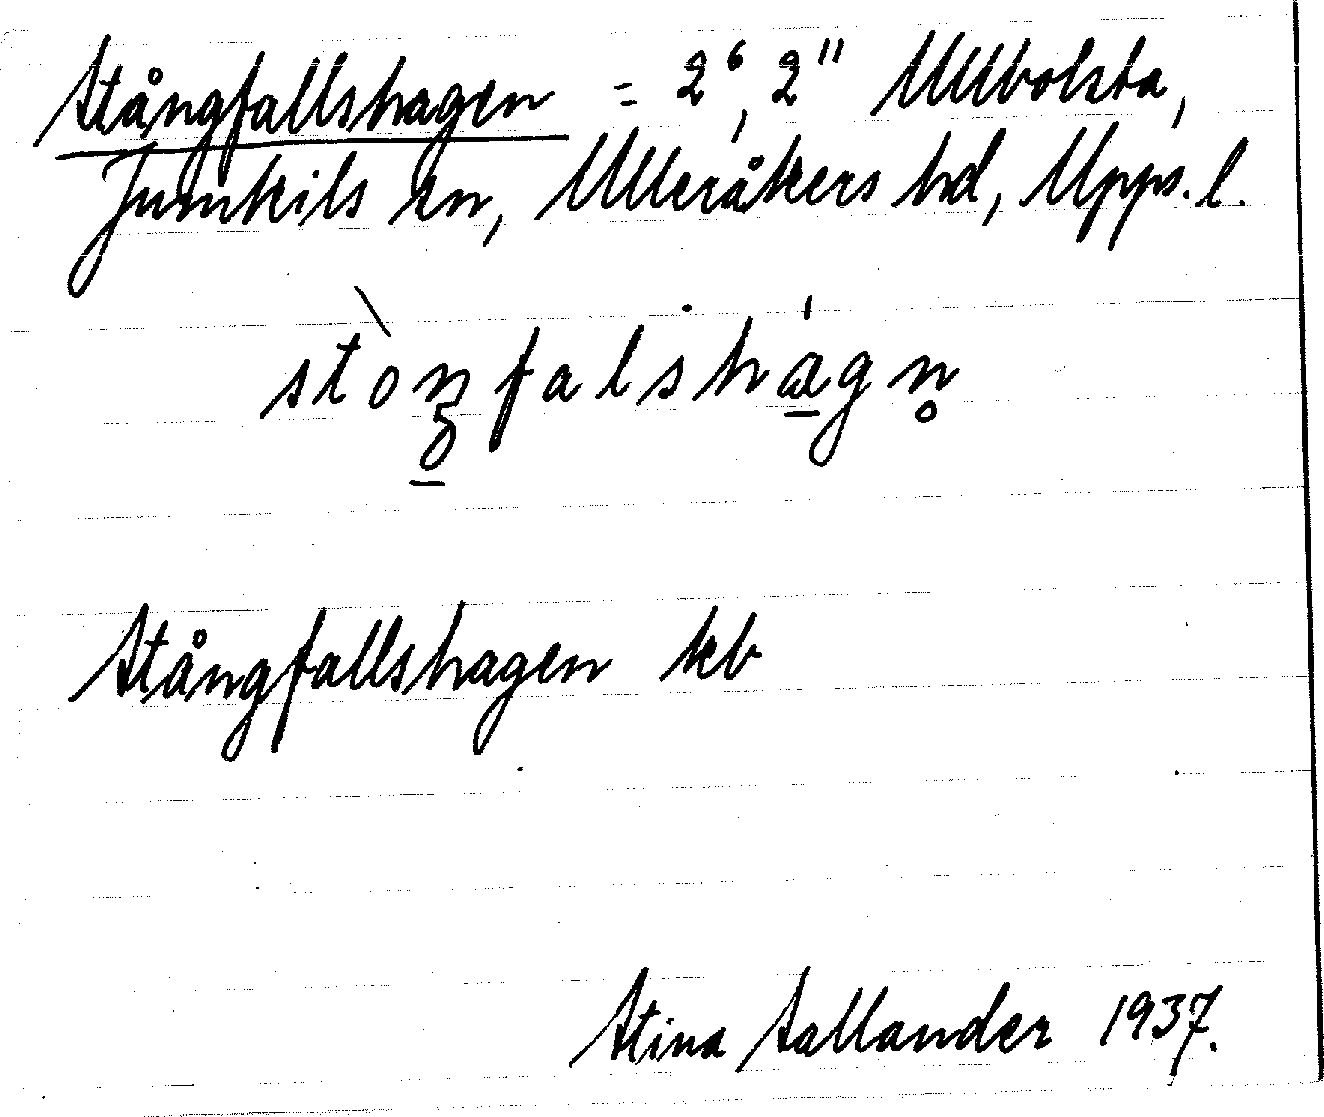 Stångfallshagen = 2⁶, 2" Ullbolsta,
Jumkils sn, Ulleråkers hd, Upps. l.
stòŋfalshágn̥
Stångfallshagen kb
Stina Sallander 1937.